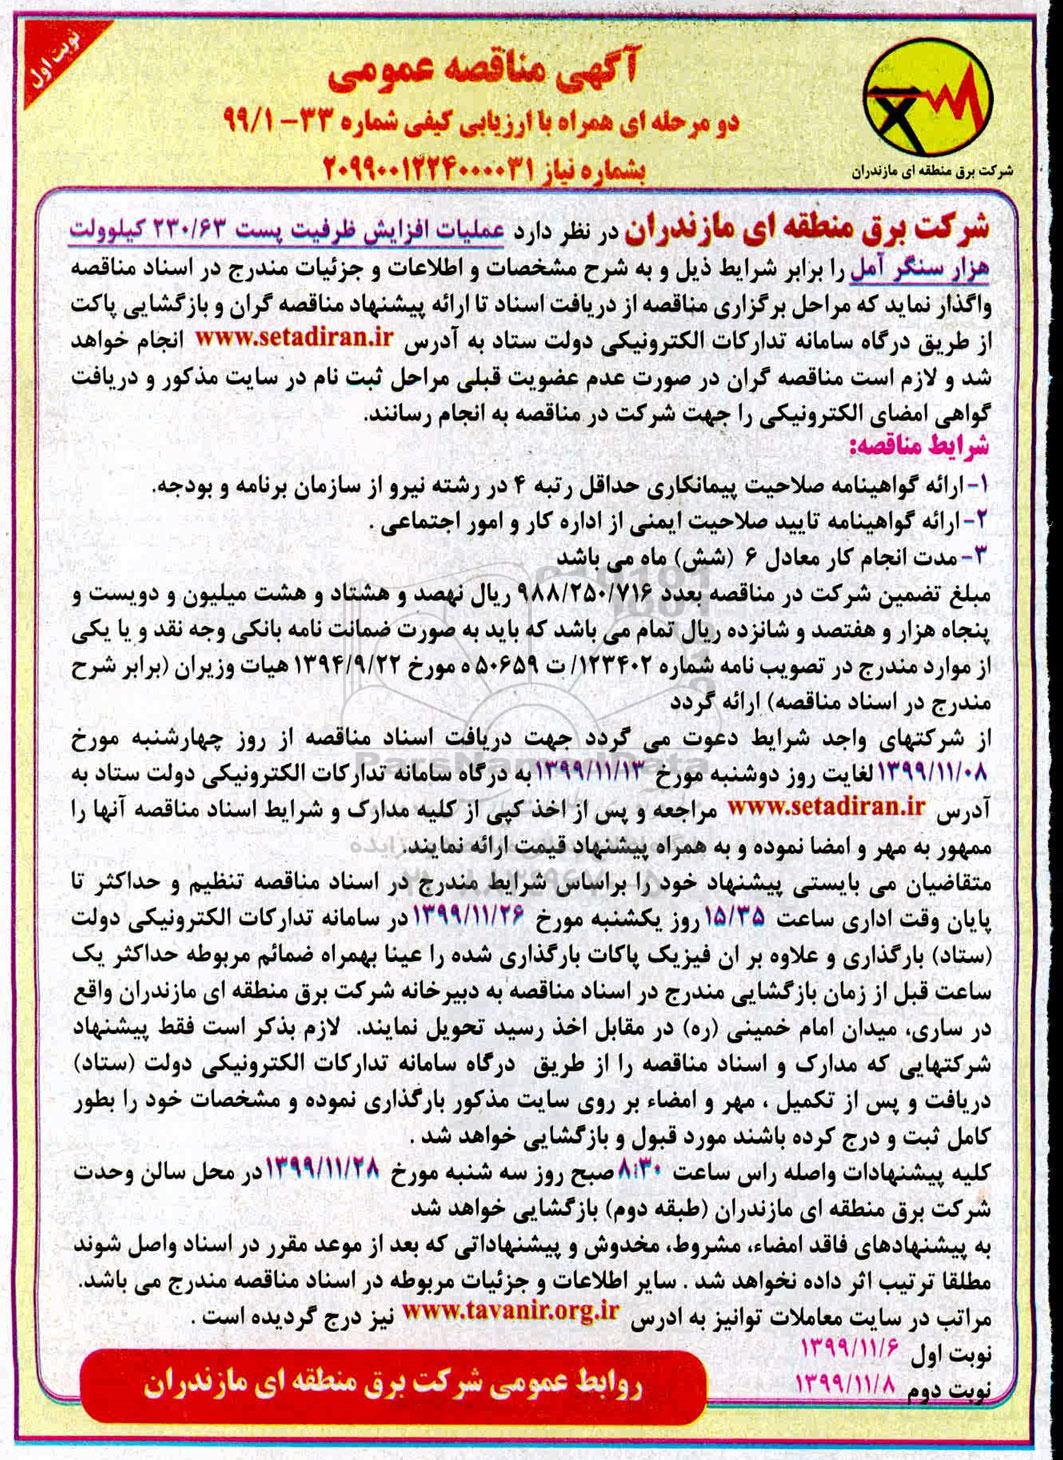 نوبت اول
آگهی مناقصه عمومی
دو مرحله ای همراه با ارزیابی کیفی شماره ۳۳-۹۹/۱
بشماره نیاز ۲۰۹۹۰۰۱۲۲۴۰۰۰۰۳۱
شرکت برق منطقه ای مازندران
شرکت برق منطقه ای مازندران در نظر دارد عملیات افزایش ظرفیت پست ۲۳۰/۶۳ کیلوولت
هزار سنگر آمل را برابر شرایط ذیل و به شرح مشخصات و اطلاعات و جزئیات مندرج در اسناد مناقصه
واگذار نماید که مراحل برگزاری مناقصه از دریافت اسناد تا ارائه پیشنهاد مناقصه گران و بازگشایی پاکت
از طریق درگاه سامانه تدارکات الکترونیکی دولت ستاد به آدرس www.setadiran.ir انجام خواهد
شد و لازم است مناقصه گران در صورت عدم عضویت قبلی مراحل ثبت نام در سایت مذکور و دریافت
گواهی امضای الکترونیکی را جهت شرکت در مناقصه به انجام رسانند.
شرایط مناقصه:
۱-ارائه گواهینامه صلاحیت پیمانکاری حداقل رتبه ۴ در رشته نیرو از سازمان برنامه و بودجه.
۲-ارائه گواهینامه تایید صلاحیت ایمنی از اداره کار و امور اجتماعی .
۳-مدت انجام کار معادل ۶ (شش) ماه می باشد
مبلغ تضمین شرکت در مناقصه بعدد ۹۸۸/۲۵۰/۷۱۶ ریال نهصد و هشتاد و هشت میلیون و دویست و
پنجاه هزار و هفتصد و شانزده ریال تمام می باشد که باید به صورت ضمانت نامه بانکی وجه نقد و یا یکی
از موارد مندرج در تصویب نامه شماره ۱۲۳۴۰۲/ ت ۵۰۶۵۹ ه مورخ ۱۳۹۴/۹/۲۲ هیات وزیران (برابر شرح
مندرج در اسناد مناقصه) ارائه گردد
از شرکتهای واجد شرایط دعوت می گردد جهت دریافت اسناد مناقصه از روز چهارشنبه مورخ
۱۳۹۹/۱۱/۰۸ لغایت روز دوشنبه مورخ ۱۳۹۹/۱۱/۱۳ به درگاه سامانه تدارکات الکترونیکی دولت ستاد به
آدرس www.setadiran.ir مراجعه و پس از اخذ کپی از کلیه مدارک و شرایط اسناد مناقصه آنها را
ممهور به مهر و امضا نموده و به همراه پیشنهاد قیمت ارائه نمایند.
متقاضیان می بایستی پیشنهاد خود را براساس شرایط مندرج در اسناد مناقصه تنظیم و حداکثر تا
پایان وقت اداری ساعت ۱۵/۳۵ روز یکشنبه مورخ ۱۳۹۹/۱۱/۲۶ در سامانه تدارکات الکترونیکی دولت
(ستاد) بارگذاری و علاوه بر ان فیزیک پاکات بارگذاری شده را عینا بهمراه ضمائم مربوطه حداکثر یک
ساعت قبل از زمان بازگشایی مندرج در اسناد مناقصه به دبیرخانه شرکت برق منطقه ای مازندران واقع
در ساری، میدان امام خمینی (ره) در مقابل اخذ رسید تحویل نمایند. لازم بذکر است فقط پیشنهاد
شرکتهایی که مدارک و اسناد مناقصه را از طریق درگاه سامانه تدارکات الکترونیکی دولت (ستاد)
دریافت و پس از تکمیل ، مهر و امضاء بر روی سایت مذکور بارگذاری نموده و مشخصات خود را بطور
کامل ثبت و درج کرده باشند مورد قبول و بازگشایی خواهد شد .
کلیه پیشنهادات واصله راس ساعت ۸:۳۰ صبح روز سه شنبه مورخ ۱۳۹۹/۱۱/۲۸ در محل سالن وحدت
شرکت برق منطقه ای مازندران (طبقه دوم) بازگشایی خواهد شد
به پیشنهادهای فاقد امضاء، مشروط، مخدوش و پیشنهاداتی که بعد از موعد مقرر در اسناد واصل شوند
مطلقا ترتیب اثر داده نخواهد شد . سایر اطلاعات و جزئیات مربوطه در اسناد مناقصه مندرج می باشد.
مراتب در سایت معاملات توانیز به ادرس www.tavanir.org.ir نیز درج گردیده است .
نوبت اول ۱۳۹۹/۱۱/۶
نوبت دوم ۱۳۹۹/۱۱/۸
روابط عمومی شرکت برق منطقه ای مازندران